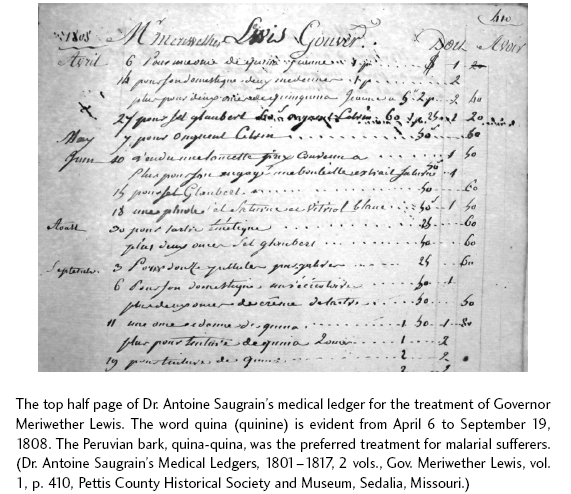 410
1808 Mr. Meriwether Lewis Gouver. Doit Avoir
Avril 6 Pour une once de quina 1
14 pour son domestique deux medecine 2
plus pour deux once de quinquina 2 40
27 pour sel glaubert 60 20
May 7 pour Onguent Citrin 50 60
Juin 10 une lancette 1 50
Plus pour son engagé une bouteille extrait 1
15 pour sel Glaubert 40 60
18 une et vitriol blanc 1 50
Aoust 30 pour tartre emetique 25 60
plus deux once sel glaubert 40 60
Septembre 3 Pour douze pillules 25 60
6 Pour son domestique 50 1
plus deux once de crême de tartre 50 50
11 une once de quina 1 50 1 50
plus pour tinture de quina 2 once 1 2
19 pour tinture de quina 2
2 2
The top half page of Dr. Antoine Saugrain’s medical ledger for the treatment of Governor
Meriwether Lewis. The word quina (quinine) is evident from April 6 to September 19,
1808. The Peruvian bark, quina-quina, was the preferred treatment for malarial sufferers.
(Dr. Antoine Saugrain’s Medical Ledgers, 1801–1817, 2 vols., Gov. Meriwether Lewis, vol.
1, p. 410, Pettis County Historical Society and Museum, Sedalia, Missouri.)